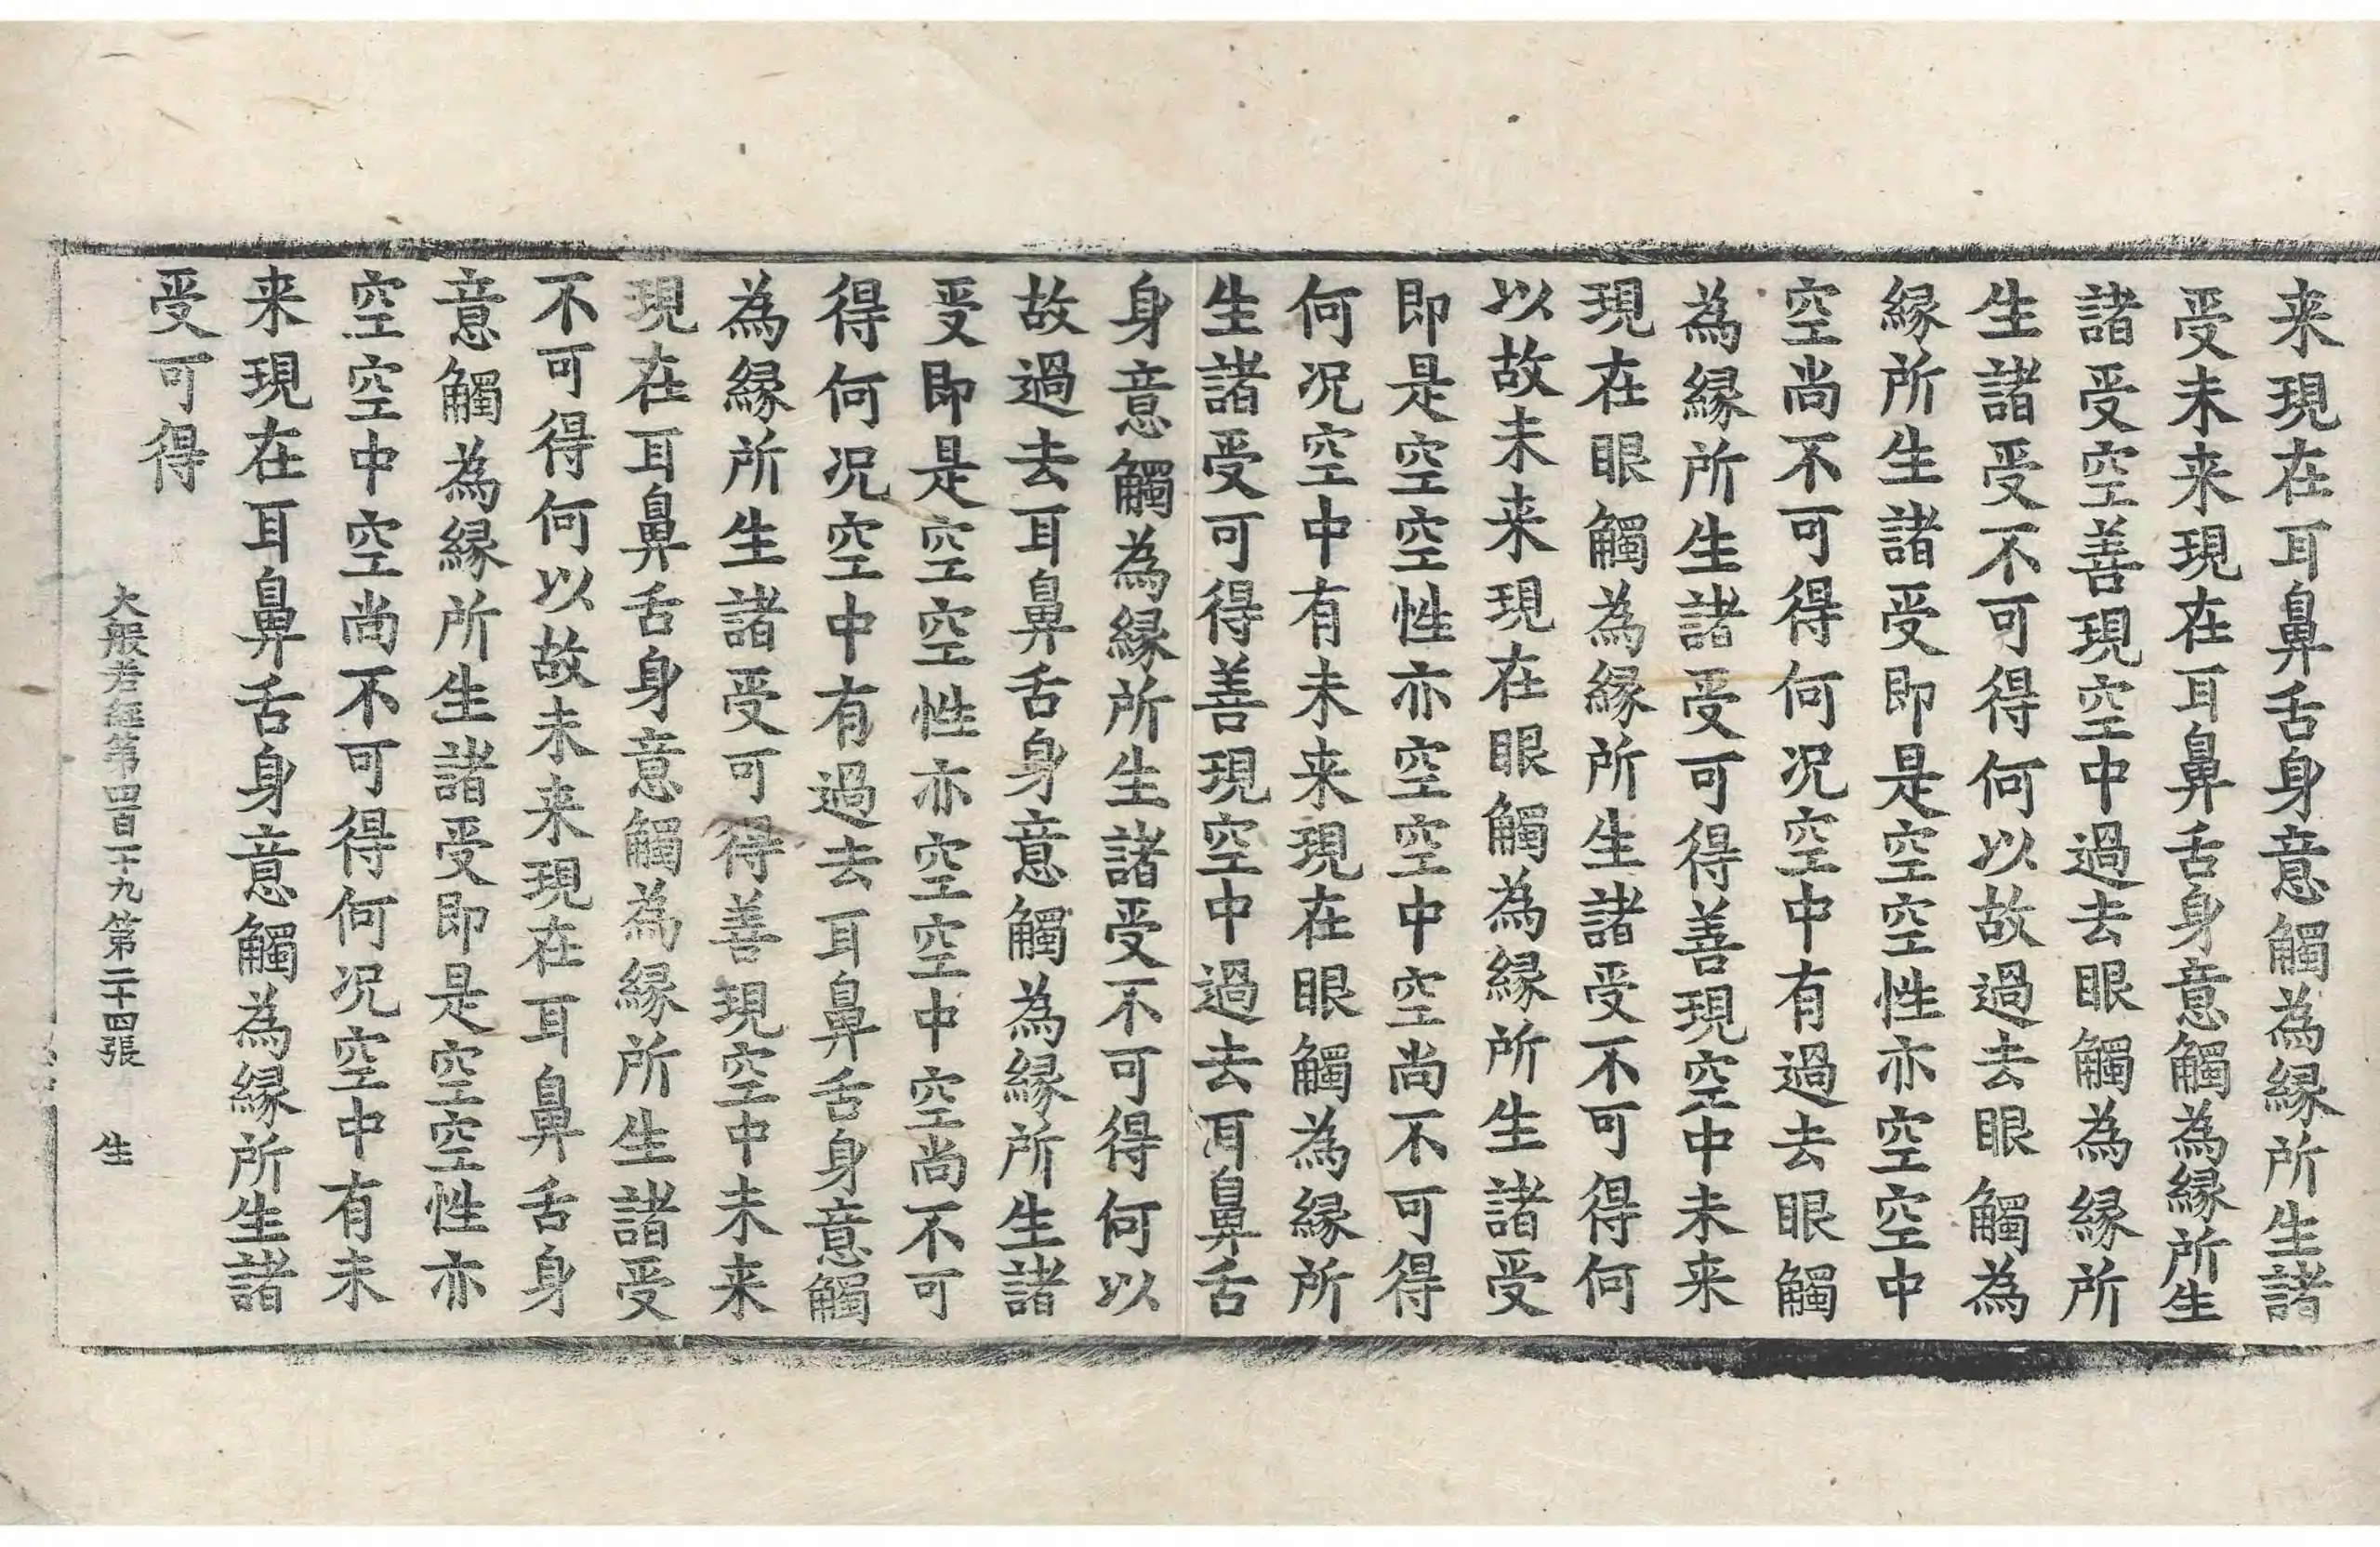 来現在耳鼻舌身意觸為縁所生諸
受未来現在耳鼻舌身意觸為縁所生
諸受空善現空中過去眼觸為縁所
生諸受不可得何以故過去眼觸為
縁所生諸受即是空空性亦空空中
空尚不可得何况空中有過去眼觸
為縁所生諸受可得善現空中未来
現在眼觸為縁所生諸受不可得何
以故未来現在眼觸為縁所生諸受
即是空空性亦空空中空尚不可得
何况空中有未来現在眼觸為縁所
生諸受可得善現空中過去耳鼻舌
身意觸為縁所生諸受不可得何以
故過去耳鼻舌身意觸為縁所生諸
受即是空空性亦空空中空尚不可
得何况空中有過去耳鼻舌身意觸
為縁所生諸受可得善現空中未来
現在耳鼻舌身意觸為縁所生諸受
不可得何以故未来現在耳鼻舌身
意觸為縁所生諸受即是空空性亦
空空中空尚不可得何况空中有未
来現在耳鼻舌身意觸為縁所生諸
受可得
大般若經第四百一十九 第二十四張 生